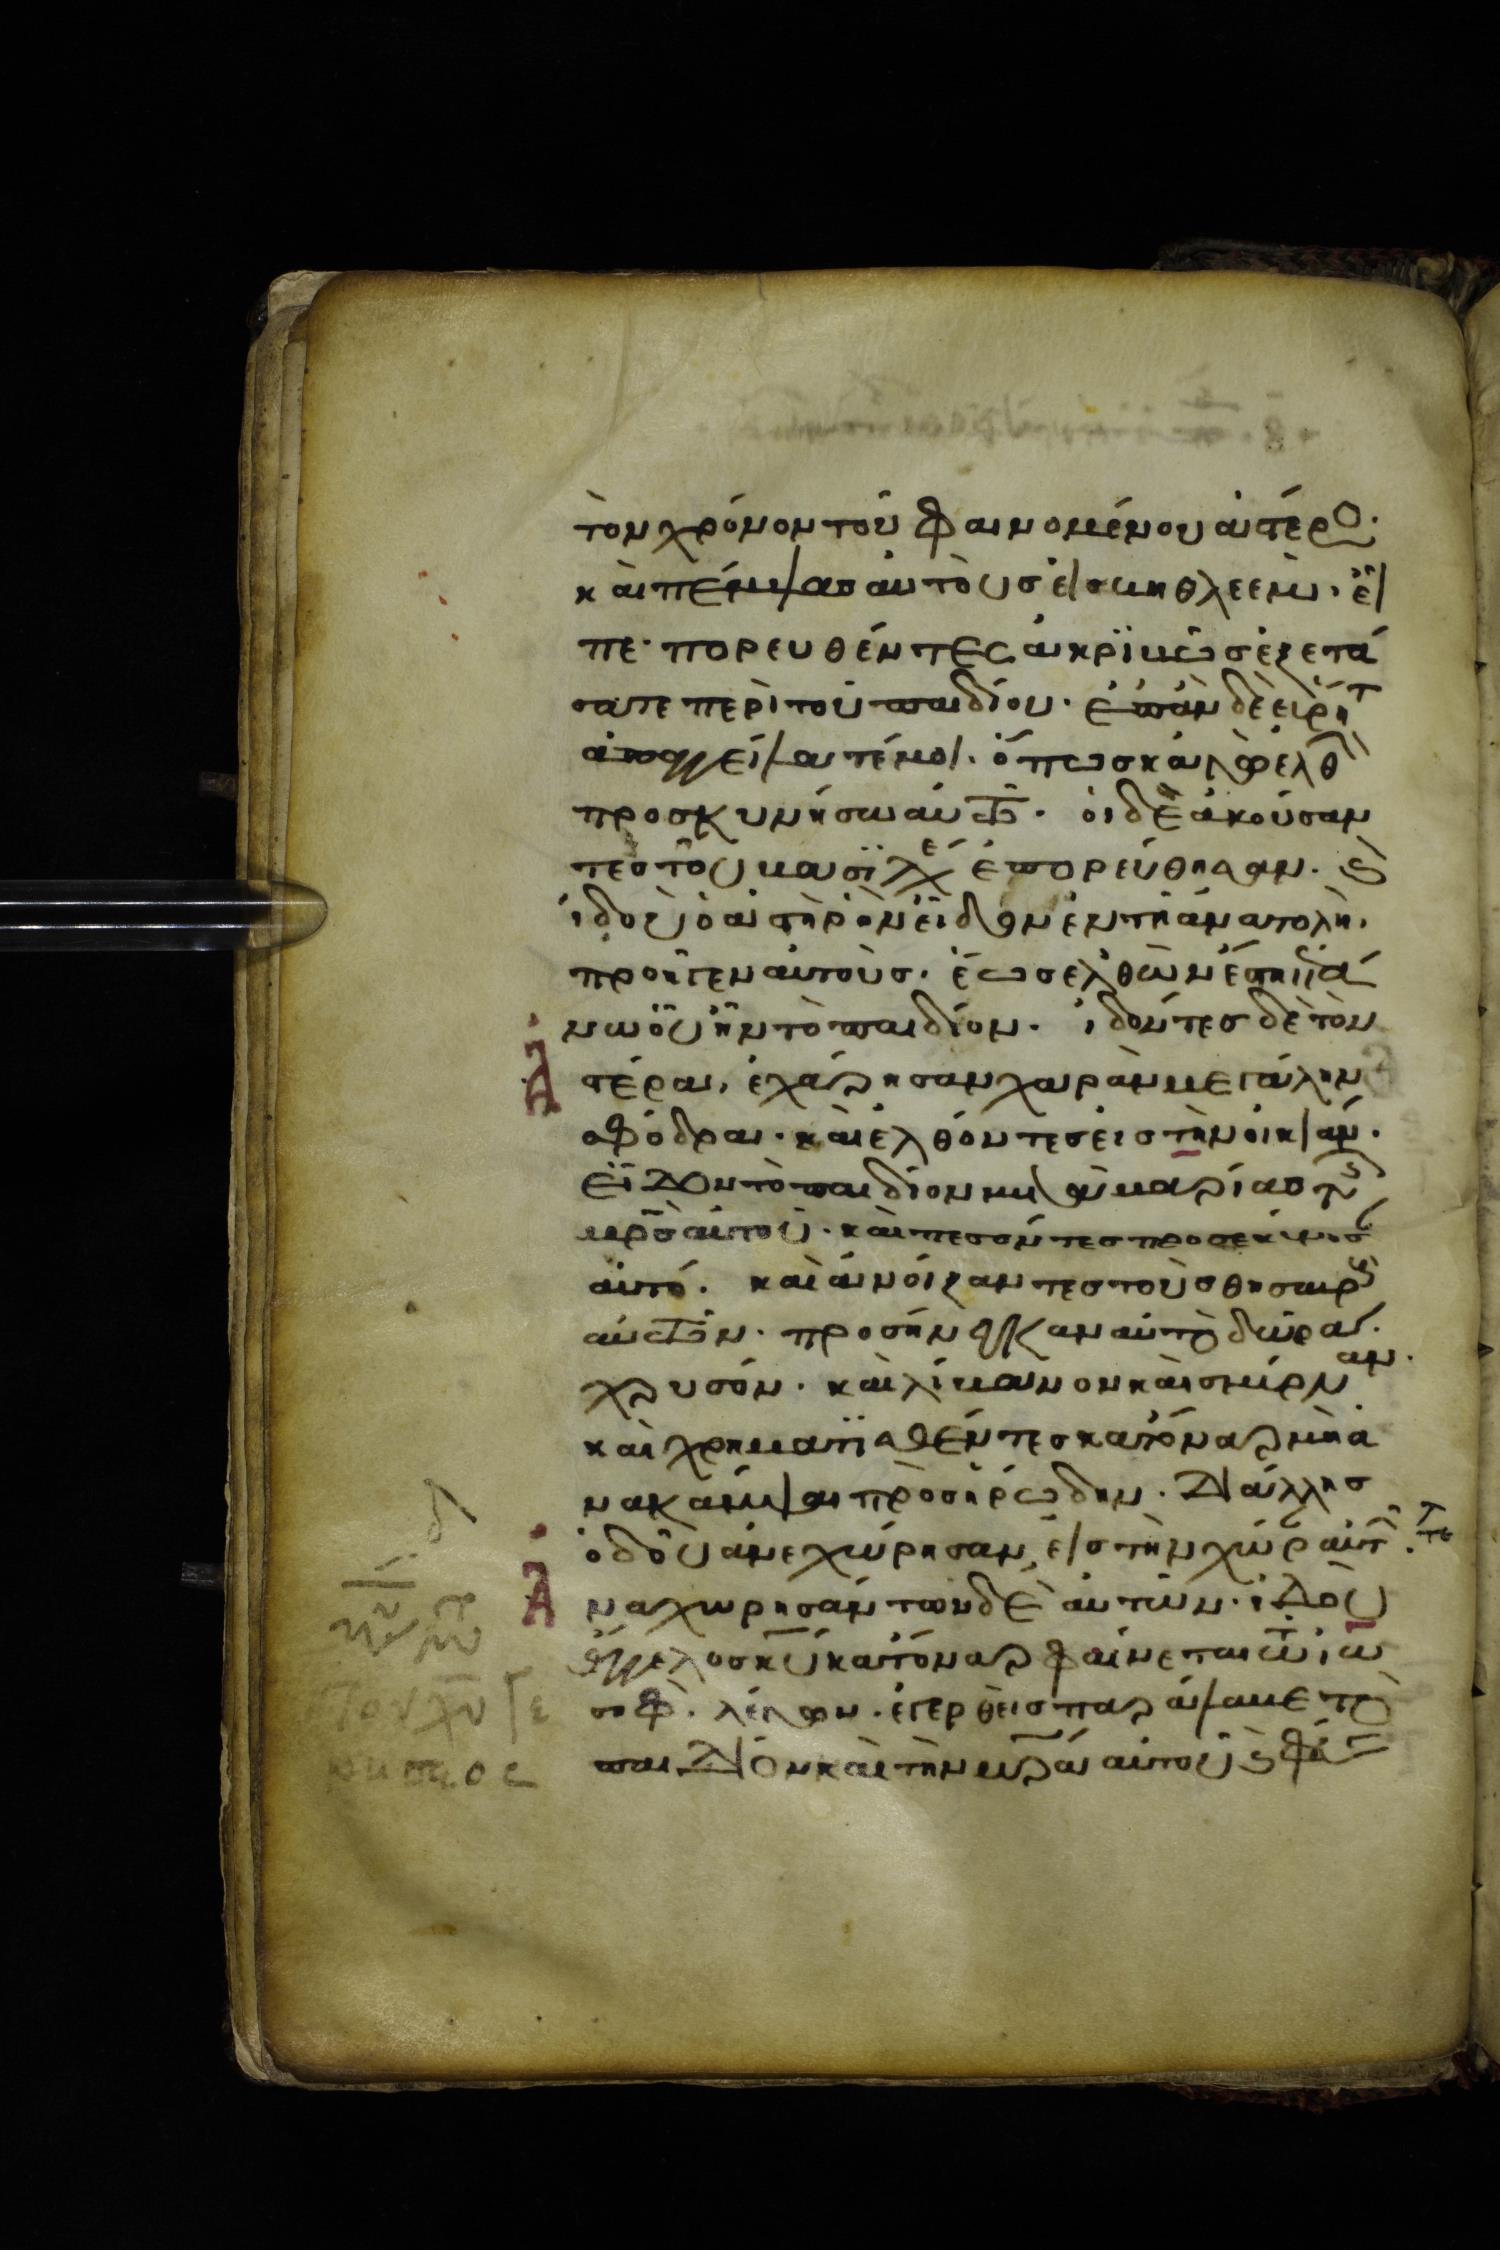 τὸν χρόνον τοῦ φαινομένου ἀστέρο.
καὶ πέμψας αὐτοὺς εἰς βηθλεὲμ· εἶ
πε· πορευθέντες ἀκριβῶς ἐξετά
σατε περὶ τοῦ παιδίου· ἐπὰν δὲ εὕρητ
ἀπαγγείλατέ μοι· ὅπως κἀγὼ ἐλθ
προσκυνήσω αὐτῶ· οἱ δὲ ἀκούσαν
τες τοῦ βασιλέ ἐπορεύθησαν· ϗ
ἰδοὺ ὁ ἀστὴρ ὃν εἶδον ἐν τῆ ἀνατολῆ·
προῆγεν αὐτοὺς· ἕως ἐλθὼν ἔστη ἐπά
νω οὗ ἦν τὸ παιδίον· ἰδόντες δὲ τὸν
ἀστέρα, ἐχάρησαν χαρὰν μεγάλην
σφόδρα· καὶ ἐλθόντες εἰς τὴν οἰκίαν·
εἶδον τὸ παιδίον μετὰ μαρίας τῆς
μρσ αὐτοῦ· καὶ πεσόντες προσεκύνησ
αὐτό· καὶ ἀνοίξαντες τοὺς θησαυρ
αὐτῶν· προσήνεγκαν αὐτῶ δῶρα·
χρυσόν· καὶ λίβανον καὶ σμύρναν·
καὶ χρηματισθέντες κατόναρ μὴ ἀ
νακάμψαι πρὸς ἡρώδην· δι ἄλλης
ὁδοῦ ἀνεχώρησαν εἰς τὴν χώρ αὐτ. τ τε
Ἀναχωρησάντων δὲ αὐτῶν· ἰδοὺ
ἄγγελος κυ κατόναρ φαίνεται τῶ ἰω
σηφ· λέγων· ἐγερθεὶς παράλαβε τὸ
παιδίον καὶ τὴν μρα αὐτοῦ ϗ φε